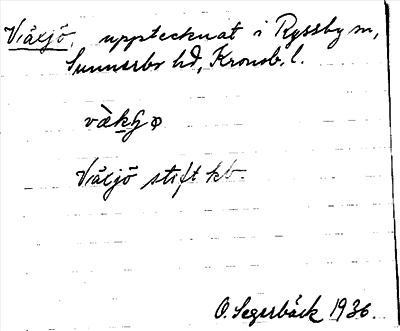 Växjö, upptecknat i Ryssby sn,
Sunnerbo hd, Kronob. l.
Växjö stift kb.
O. Segerbäck 1936.